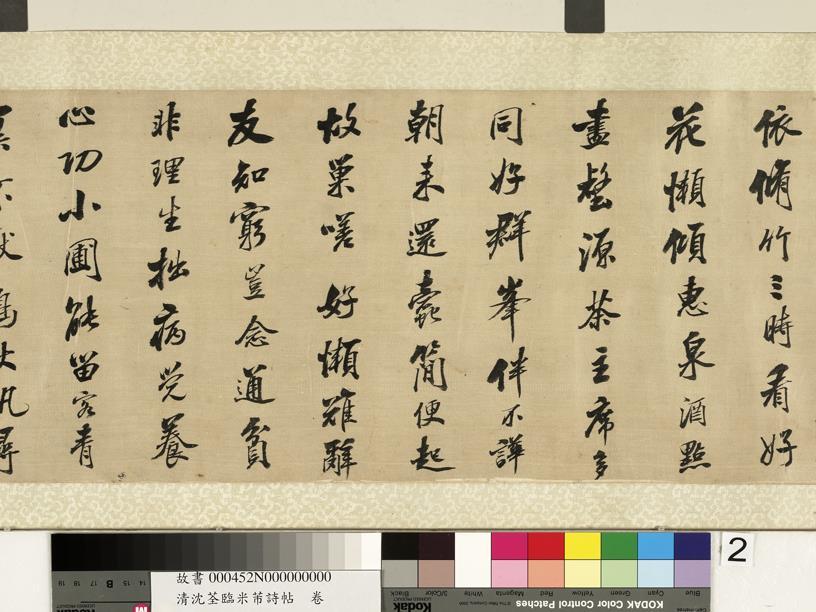 依脩竹三時看好
花懶傾惠泉酒點
盡壑源茶主席多
同好群峯伴不譁
朝來還蠹簡便起
故巢嗟 好懶難辭
友知窮豈念通貧
非理生拙病覺養
心功小圃能留客青
2
Blue Cyan Green Yellow Red Magenta White 3/Color Black
KODAK Color Control Patches
Kodak
故書 000452N000000000
清沈荃臨米芾詩帖 卷
19 18 17 B 16 15 14
M